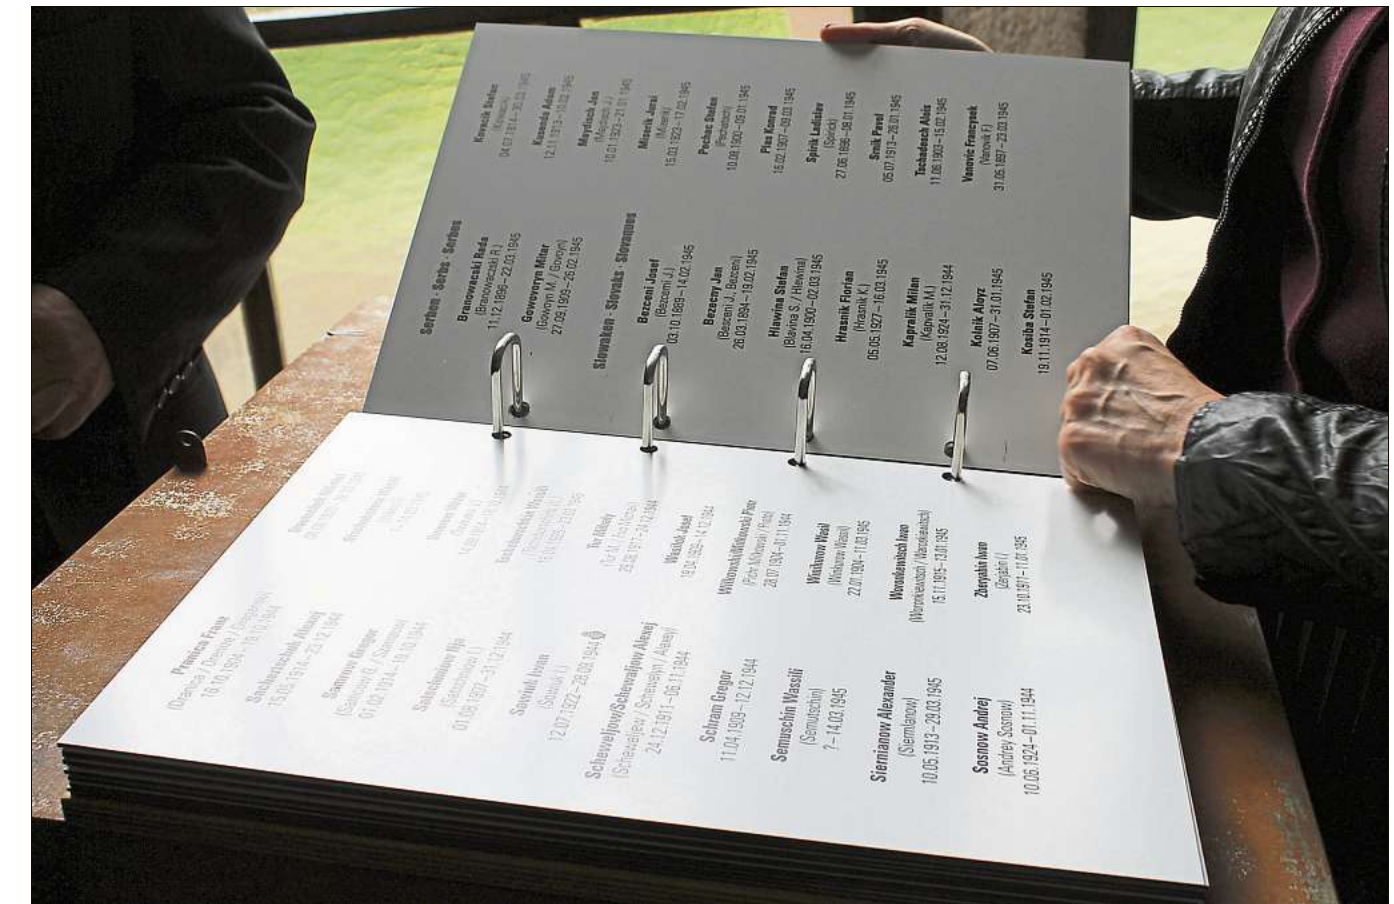 Serben · Serbs · Serbes
Branowacski Rada
(Branowaczski R.)
11.12.1896–22.03.1945
Gowovoryn Mitar
(Govoyn M. / Govoyn)
27.09.1909–26.02.1945
Slowaken · Slovaks · Slovaques
Bezceni Josef
(Bezcemi J.)
03.10.1889–14.02.1945
Bezecny Jan
(Besceni J., Bezceni)
26.03.1894–19.02.1945
Hlawina Stefan
(Blavina S. / Hlewina)
16.04.1900–02.03.1945
Hrasnik Florian
(Hrasnik K.)
05.05.1927–16.03.1945
Kapralik Milan
(Kapvalik M.)
12.08.1924–31.12.1944
Kolnik Aloyz
07.06.1907–31.01.1945
Kosiba Stefan
19.11.1914–01.02.1945
Kovacik Stefan
(Kowacik)
04.07.1914–30.03.1945
Kusenda Adam
12.11.1913–10.03.1945
Maytlach Jan
(Majciach J.)
10.01.1923–21.01.1945
Miserik Jurai
(Mizerik)
15.03.1923–17.02.1945
Pochec Stefan
(Pechatsch)
10.08.1900–09.01.1945
Plas Konrad
16.02.1907–09.03.1945
Spirik Ladislav
(Spirick)
27.06.1896–08.01.1945
Srnik Pavol
05.07.1913–26.01.1945
Tschadesch Alois
11.06.1903–15.02.1945
Vanovic Francysek
(Vanovik F.)
31.05.1897–23.03.1945
Pramica Franz
16.10.1904–19.10.1944
Sacharischuk Alexej
15.05.1914–23.12.1944
Samriw Gregor
01.02.1914–19.10.1944
Saschimow Ilja
01.08.1907–31.12.1944
Sawink Iwan
(Sawnuk I.)
12.07.1922–28.09.1944
Scheweljow/Schewaljow Alexej
(Schewelјew / Schewelyn / Alaxey)
24.12.1911–06.11.1944
Schram Gregor
11.04.1909–12.12.1944
Semuschin Wassili
(Semutschin)
?–14.03.1945
Siernianow Alexander
(Siermlanow)
10.05.1913–29.03.1945
Sosnow Andrej
(Andrey Sosnow)
10.06.1924–01.11.1944
Tur Nikolij
25.08.1911–24.12.1944
Wasiluk Josef
19.04.1925–14.12.1944
Wilkowski/Milkowski Piotr
28.07.1904–01.11.1944
Winikurow Wasil
(Winikurow Wassil)
22.01.1904–11.03.1945
Woronkiewitsch Iwan
(Woronkiewitsch / Waroskiewitsch)
15.11.1915–13.01.1945
Zberjabin Iwan
(Zerjabin I.)
23.10.1911–11.01.1945